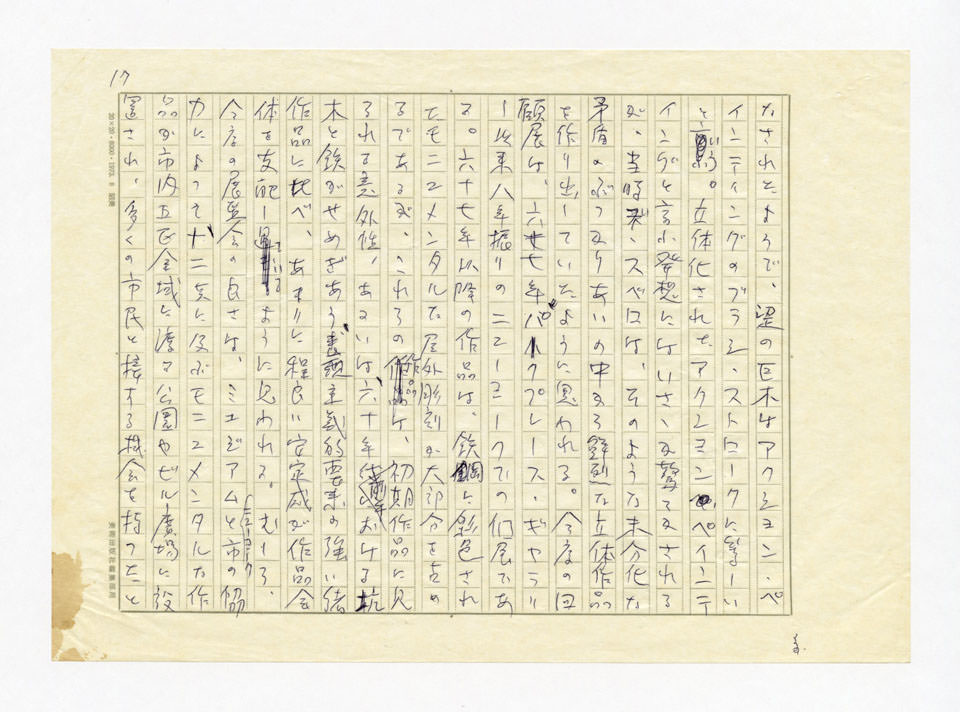 17
なされたようで、梁の巨木はアクション・ペ
インティングのブラシ・ストロークに等しい
という。立体化されたアクション・ペインテ
イングと言ふ発想にはいささか驚かされる
が、当時、スベロは、そのような未分化な
矛盾のぶつかりあいの中から鮮烈な立体作品
を作り出していたように思われる。今度の回
顧展は、六七年パークプレース・ギャラリ
ー以来八年振りのニューヨークでの個展であ
る。六十七年以降の作品は、鉄鋼に彩色され
たモニュメンタルな屋外彫刻が大部分を占め
るであるが、これらの作品は、初期作品に見
られる意外性、あるいは六十年代前半における
木と鉄がせめぎあう表現主義的要素の強い
作品に比べ、あまりに程良い安定感が作品全
体を支配しているように見われる。むしろ、
今度の展覧会の良さは、ミュジアムとニューヨーク市の協
力によって十二点に及ぶモニュメンタルな作
品が市内五区全域に渡り公園やビル広場に設
置され、多くの市民と接する機会を持ったこと
20×20